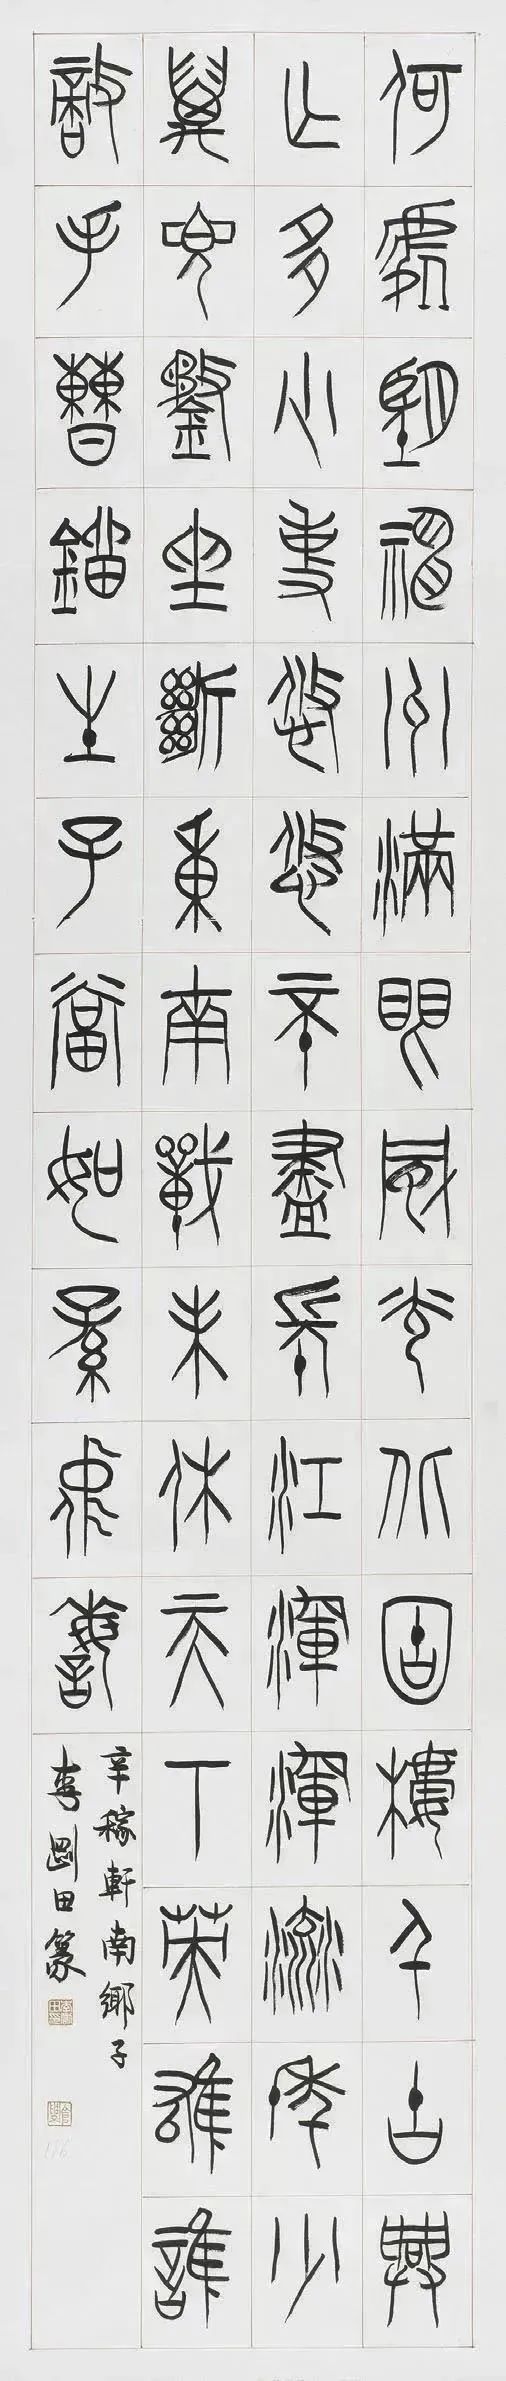 何處望神州滿眼風光北固樓千古興
亡多少事悠悠不盡長江渾渾流年少
萬兜鍪坐斷東南戰未休天下英雄誰
敵手曹鎦生子當如孫仲謀
辛稼軒南鄉子
李剛田篆